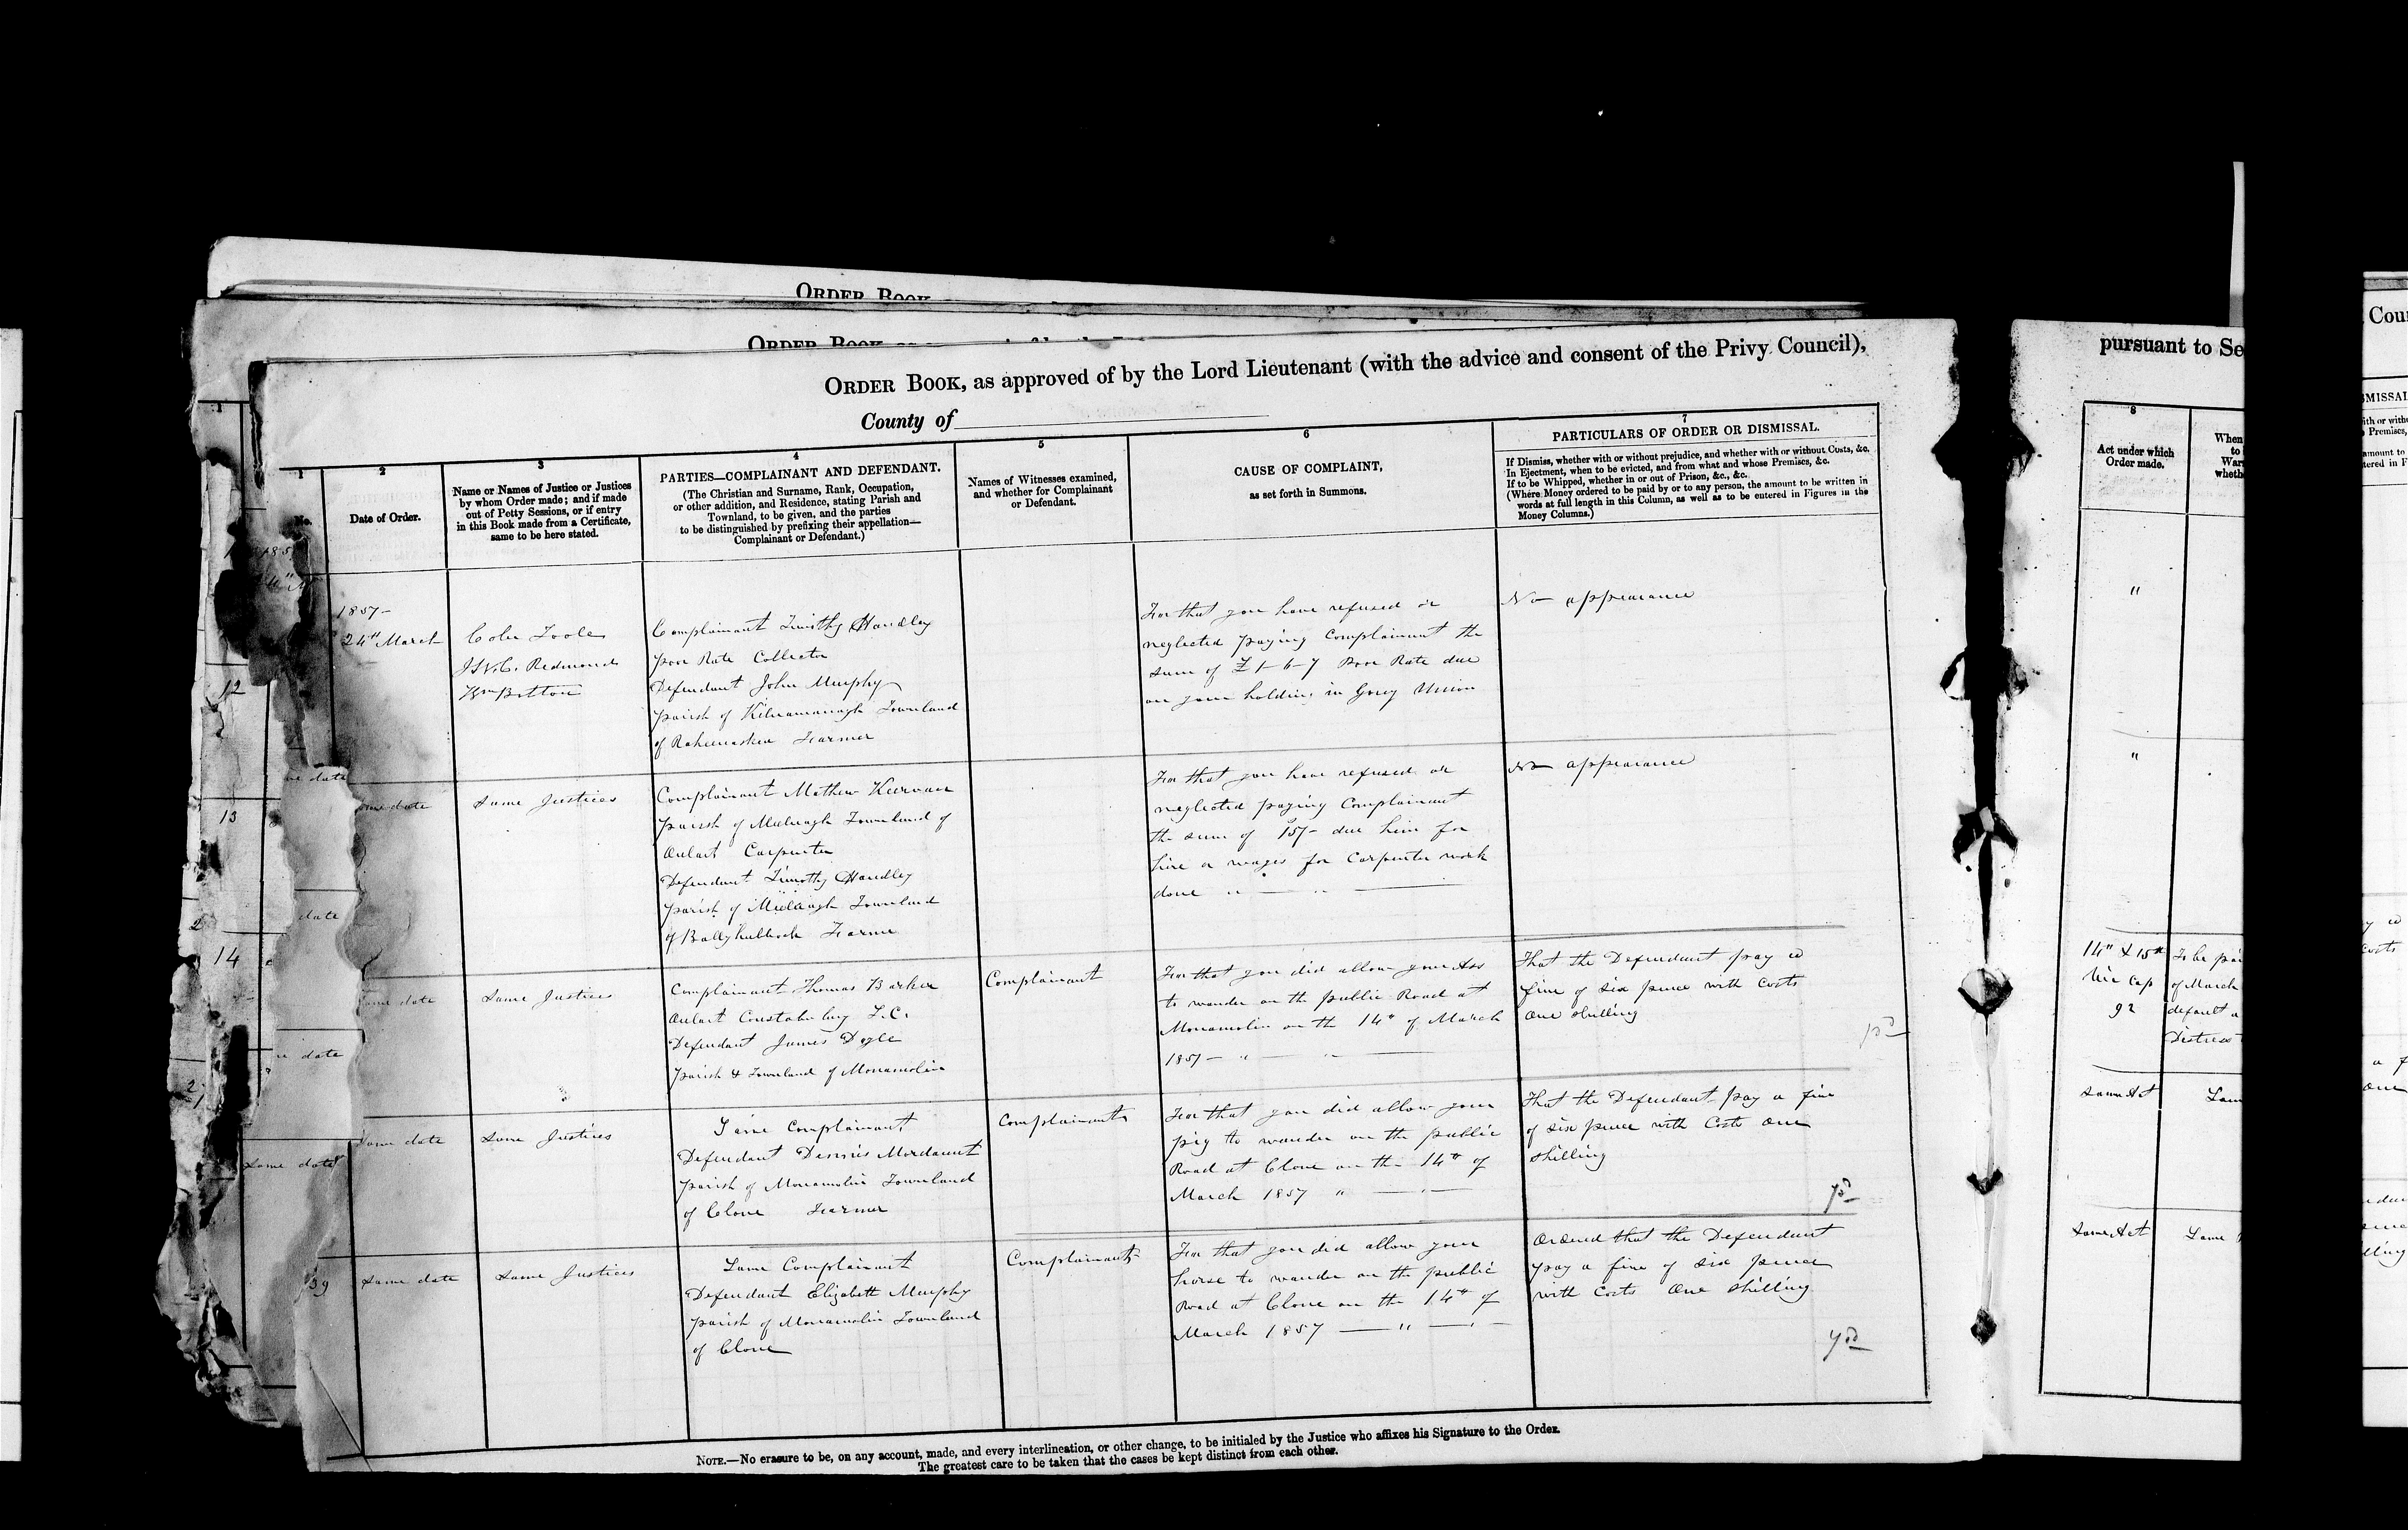 ORDER BOOK
ORDER BOOK
ORDER BOOK, as approved of by the Lord Lieutenant (with the advice and consent of the Privy Council),
County of
1
No.
2
Date of Order.
3
Name or Names of Justice or Justices
by whom Order made; and if made
out of Petty Sessions, or if entry
in this Book made from a Certificate,
same to be here stated.
4
PARTIES—COMPLAINANT AND DEFENDANT.
(The Christian and Surname, Rank, Occupation,
or other addition, and Residence, stating Parish and
Townland, to be given, and the parties
to be distinguished by prefixing their appellation—
Complainant or Defendant.)
5
Names of Witnesses examined,
and whether for Complainant
or Defendant.
6
CAUSE OF COMPLAINT,
as set forth in Summons.
7
PARTICULARS OF ORDER OR DISMISSAL.
If Dismiss, whether with or without prejudice, and whether with or without Costs, &c.
In Ejectment, when to be evicted, and from what and whose Premises, &c.
If to be Whipped, whether in or out of Prison, &c., &c.
(Where Money ordered to be paid by or to any person, the amount to be written in
words at full length in this Column, as well as to be entered in Figures in the
Money Columns.)
1857-
24" March
Toole
Redmond
Wm Bolton
Complainant Timothy Handley
Poor Rate Collector
Defendant John Murphy
parish of Kilnamanagh Townland
of Raheenaskea Farmer
For that you have refused or
neglected paying Complainant the
sum of £1-6-7 Poor Rate due
on your holding in Gorey Union
No appearance
same date
Same Justices
Complainant Mathew Keirvan
parish of Townland of
Oulart Carpenter
Defendant Timothy Handley
parish of Townland
of Farmer
For that you have refused or
neglected paying Complainant
the sum of 15/- due him for
hire or wages for Carpenter work
done " — " —
No appearance
same date
Same Justices
Complainant Thomas Barker
Oulart Constabulary
Defendant James Doyle
parish & Townland of Monamolin
Complainant
For that you did allow your Ass
to wander on the public Road at
Monamolin on the 14" of March
1857- " — " —
That the Defendant pay a
fine of six pence with Costs
One shilling
pd
Same date
Same Justices
Same Complainant
Defendant Dennis Mordaunt
parish of Monamolin Townland
of Clone Farmer
Complainant
For that you did allow your
pig to wander on the public
Road at Clone on the 14" of
March 1857 " — " —
That the Defendant pay a fine
of six pence with Costs One
shilling
pd
39
Same date
Same Justices
Same Complainant
Defendant Elizabeth Murphy
parish of Monamolin Townland
of Clone
Complainant
For that you did allow your
horse to wander on the public
Road at Clone on the 14" of
March 1857 — " — " —
Ordered that the Defendant
pay a fine of six pence
with Costs One shilling
pd
NOTE.—No erasure to be, on any account, made, and every interlineation, or other change, to be initialed by the Justice who affixes his Signature to the Order.
The greatest care to be taken that the cases be kept distinct from each other.
12
13
14
date
date
date
Same date
pursuant to Se
8
Act under which
Order made.
When
to
War
wheth
"
"
14" & 15"
Vic Cap
92
To be pai
of March
default
Distress
Same Act
Same
Same Act
Same